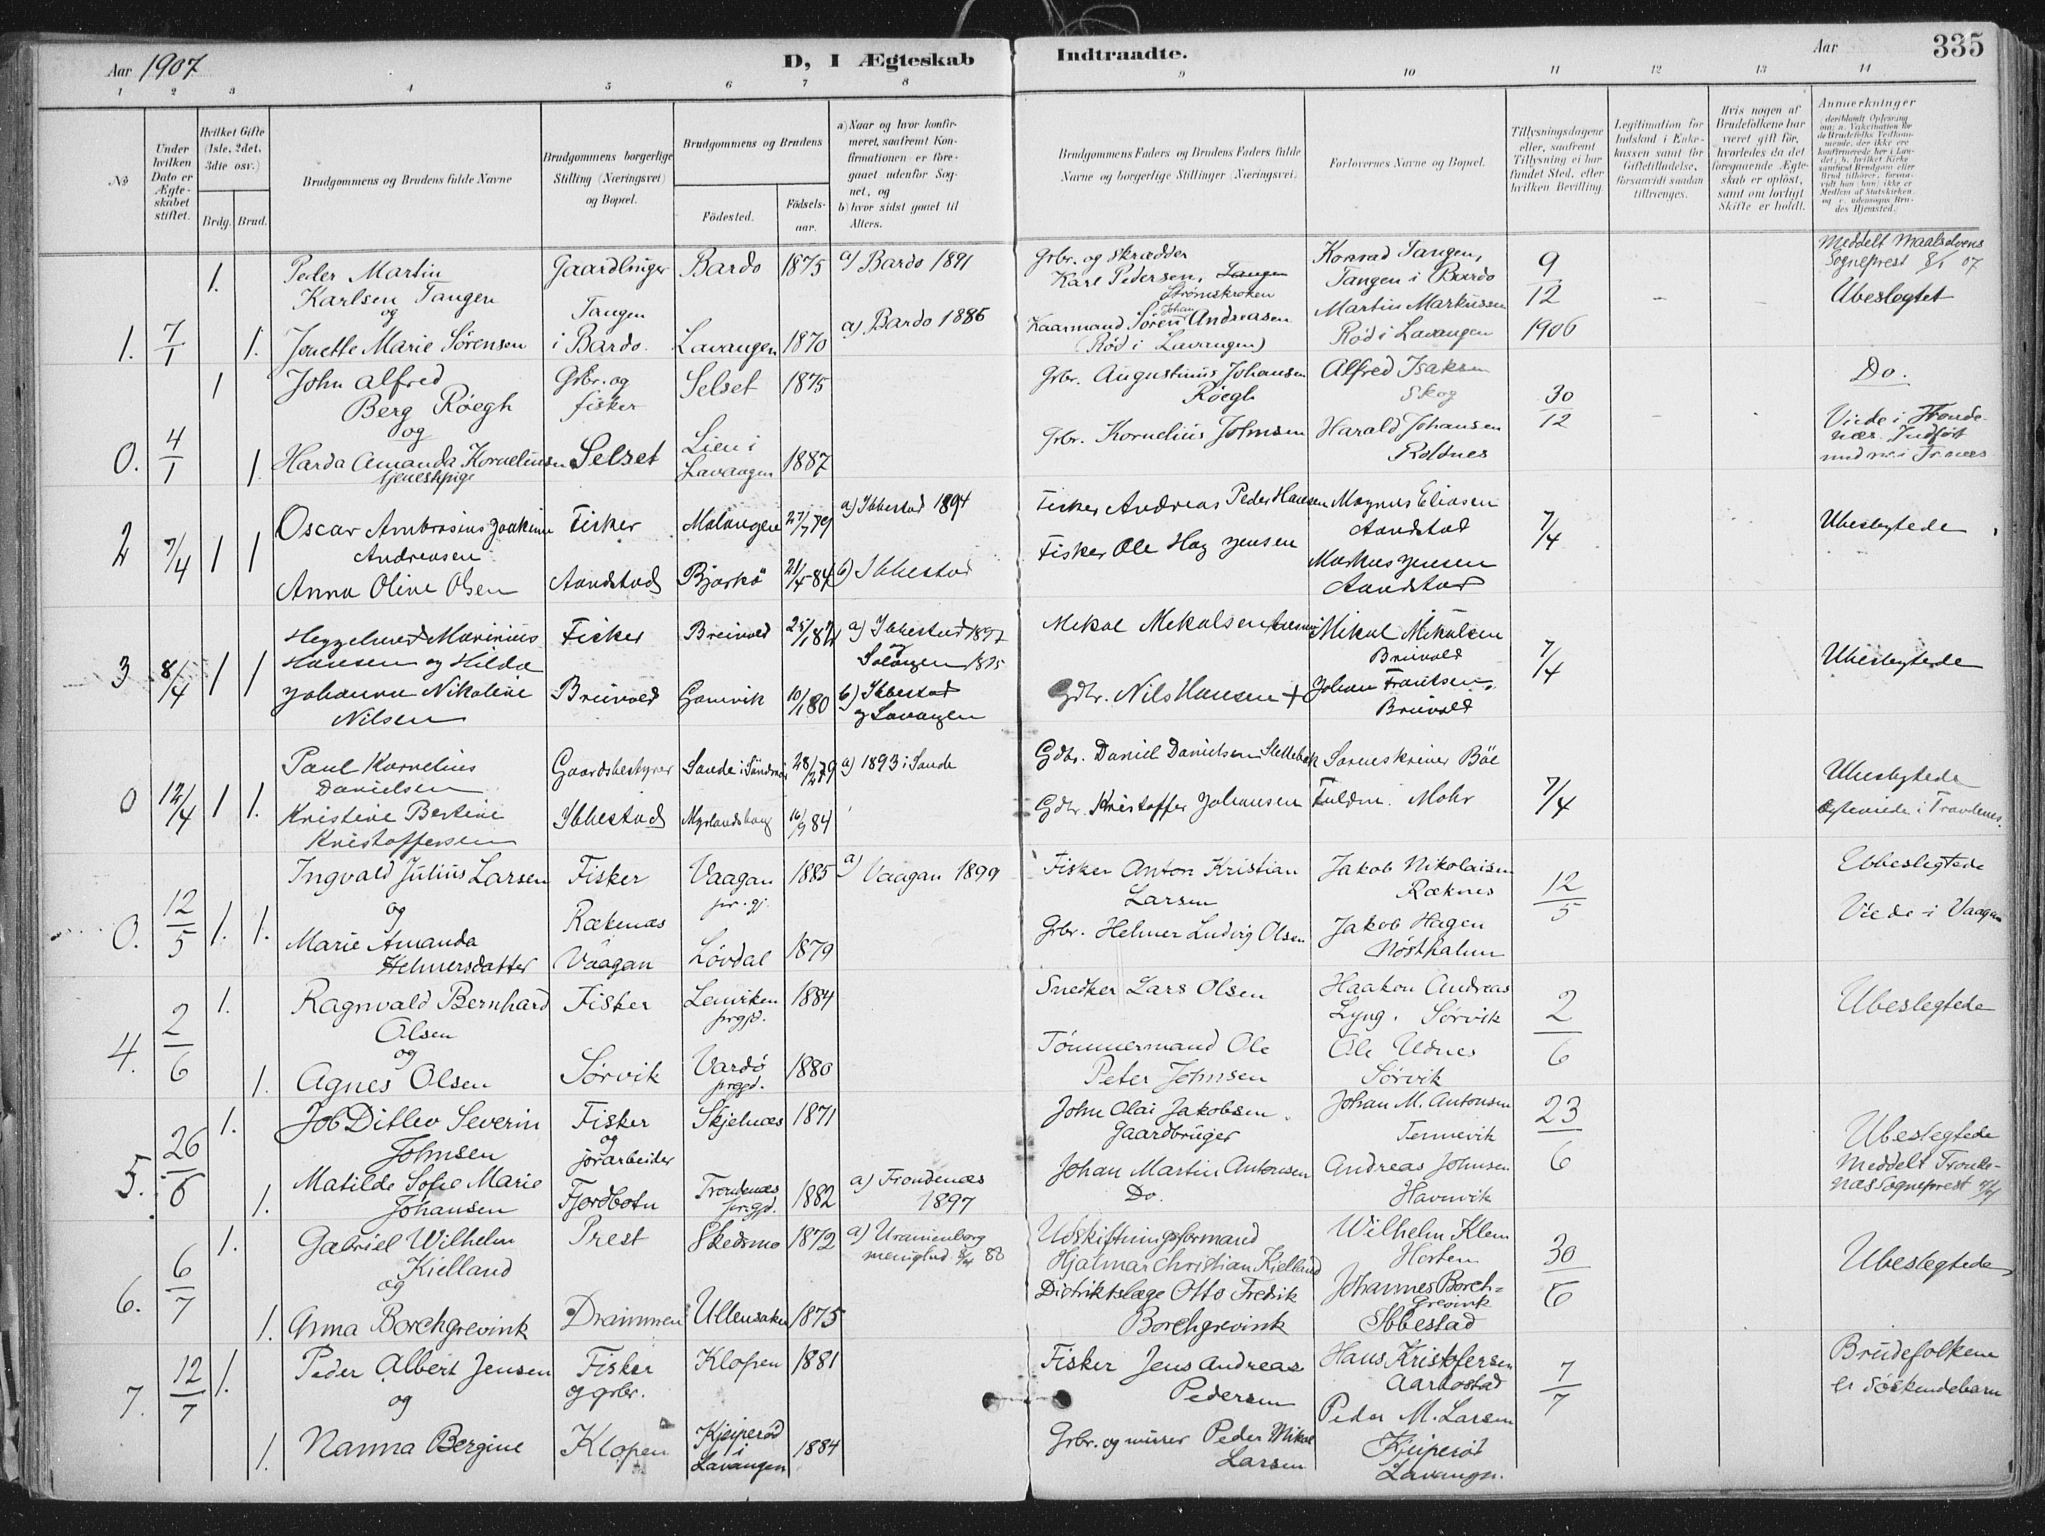 Aar 1907
D, I Ægteskab
Indtraadte.
Aar
335
1 2 3 4 5 6 7 8 9 10 11 12 13 14
№
Under hvilken Dato er Ægteskabet stiftet.
Hvilket Gifte (1ste, 2det, 3die osv.)
Brdg. Brud.
Brudgommens og Brudens fulde Navne
Brudgommens borgerlige Stilling (Næringsvei) og Bopæl.
Brudgommens og Brudens
Födested.
Födsels-aar.
a) Naar og hvor konfirmeret, saafremt Konfirmationen er foregaaet udenfor Sognet, og
b) hvor sidst gaaet til Alters.
Brudgommens Faders og Brudens Faders fulde Navne og borgerlige Stillinger (Næringsvei)
Forlovernes Navne og Bopæl.
Tillysningsdagene eller, saafremt Tillysning ei har fundet Sted, efter hvilken Bevilling.
Legitimation for Indskud i Enkekassen samt for Giftetilladelse, forsaavidt saadan tiltrænges.
Hvis nogen af Brudefolkene har været gift för, hvorledes da det foregaaende Ægteskab er oplöst, samt om lovligt Skifte er holdt.
Anmerkninger
1. 7/1 1. 1.
Peder Martin
Karlsen Tangen
og
Jenette Marie Sörensen
Gaardbruger
Tangen
i Bardo.
Bardo 1875
Lavangen 1870
a) Bardo 1891
a) Bardo 1886
Grbr. og skrædder
Karl Pedersen, Tangen
Strömskroken
Kaarmand Sören Johan Andreasen
(Röd i Lavangen)
Konrad Tangen,
Tangen i Bardo
Martin Markussen
Röd i Lavangen
9/12
1906
Meddelt Maalselvens
Sogneprest 8/1 07
Ubeslegtet
0. 4/1 1 1.
John Alfred
Berg Röegh
og
Harda Amanda Kornelius
tjenestpige
Grbr. og
fisker
Selset
Selset 1875
Lien i
Lavangen 1887
Grbr. Augustinus Johansen
Röegh
Grbr. Kornelius Johnsen
Alfred Isaksen
Skog
Harald Johansen
Roldnes
30/12
Do.
Viede i Tronde-
næs. Indfört
2 7/4 1 1
Oscar Ambrosius Joakim
Andreasen
Anna Oline Olsen
Fisker
Aandstad
Malangen 27/7 79
Bjarkö 21/4 84
a) Ibbestad 1894
b) Ibbestad
Fisker Andreas Peder Hansen
Fisker Ole Hag Jensen
Magnus Eliasen
Aandstad
Markus Jensen
Aandstad
7/4
Ubeslegtede
3 8/4 1 1
Heggelund Marinius
Hansen og Hilda
Johanna Nikoline
Nilsen
Fisker
Breivold
Breivold
Gamvik 10/1 80
a) Ibbestad 1897
og
Salangen 1895
b) Ibbestad
og Lavangen
Mekal Mekalsen
Gdbr. Nils Hansen +
Mikal Mikalsen
Breivold
Johan Frantsen
Breivold
7/4
Ubeslegtede
0 12/4 1 1.
Paul Kornelius
Danielsen
Kristine Bertine
Kristoffersen
Gaardsbestyrer
Ibbestad
Sande i Söndmör 28/12 79
Myrlandshaug 16/9 84
a) 1893 i Sande
Gdbr. Daniel Danielsen Slettebak
Gdbr. Kristoffer Johansen
Sorenskriver Böe
Fuldm. Mohr
7/4
Ubeslegtede
Egteviede i Trondenes.
0. 12/5 1. 1.
Ingvald Julius Larsen
og
Marie Amanda
Helmersdatter
Fisker
Rækenæs
Vaagan
Vaagan 1885
pr.gj.
Lövdal 1879
a) Vaagan 1899
Fisker Anton Kristian
Larsen
Grbr. Helmer Ludvig Olsen
Jakob Nikolaisen
Ræknes
Jakob Hagen
Nöstholmen
12/5
Ubeslegtede
Viede i Vaagan
4. 2/6 1. 1.
Ragnvald Bernhard
Olsen
og
Agnes Olsen
Fisker
Sörvik
Lenviken 1884
prgjd.
Vardö 1880
prgjd.
Snedker Lars Olsen
Tömmermand Ole
Peter Johnsen
Haakon Andreas
Lyng. Sörvik
Ole Udnes
Sörvik
2/6
Ubeslegtede
5. 26/6 1. 1.
Job Ditlev Severin
Johnsen
Matilde Sofie Marie
Johansen
Fisker
og
jorarbeider
Fjordbotn
Skjelnæs 1871
Trondenæs 1882
pr.gjd.
a) Trondenæs
1897
John Olai Jakobsen
Gaardbruger
Johan Martin Antonsen
Do.
Johan M. Antonsen
Tennevik
Andreas Johnsen
Havnvik
23/6
Ubeslegtede
Meddelt Tronde-
næs Sogneprest
6. 6/7 1. 1.
Gabriel Wilhelm
Kielland
og
Anna Borchgrevink
Prest
Drammen
Skedsmo 1872
Ullensaker 1875
a) Uranienborg
menighed 88
Udskiftningsformand
Hjalmar Christian Kielland
Distriktslæge Otto Fredrik
Borchgrevink
Wilhelm Klem
Horten
Johannes Borch-
grevink
Ibbestad
30/6
Ubeslegtede
7. 12/7 1. 1.
Peder Albert Jensen
og
Nanna Bergine
Fisker
og grbr.
Klopen
Klopen 1881
Kjeiperöd
i
Lavangen 1884
Fisker Jens Andreas
Pedersen
Grbr. og murer Peder Mikal
Larsen
Hans Kristofersen
Aarbostad
Peder M. Larsen
Kjeiperöt
Lavangen.
7/7
Brudefolkene
er Söskendebarn